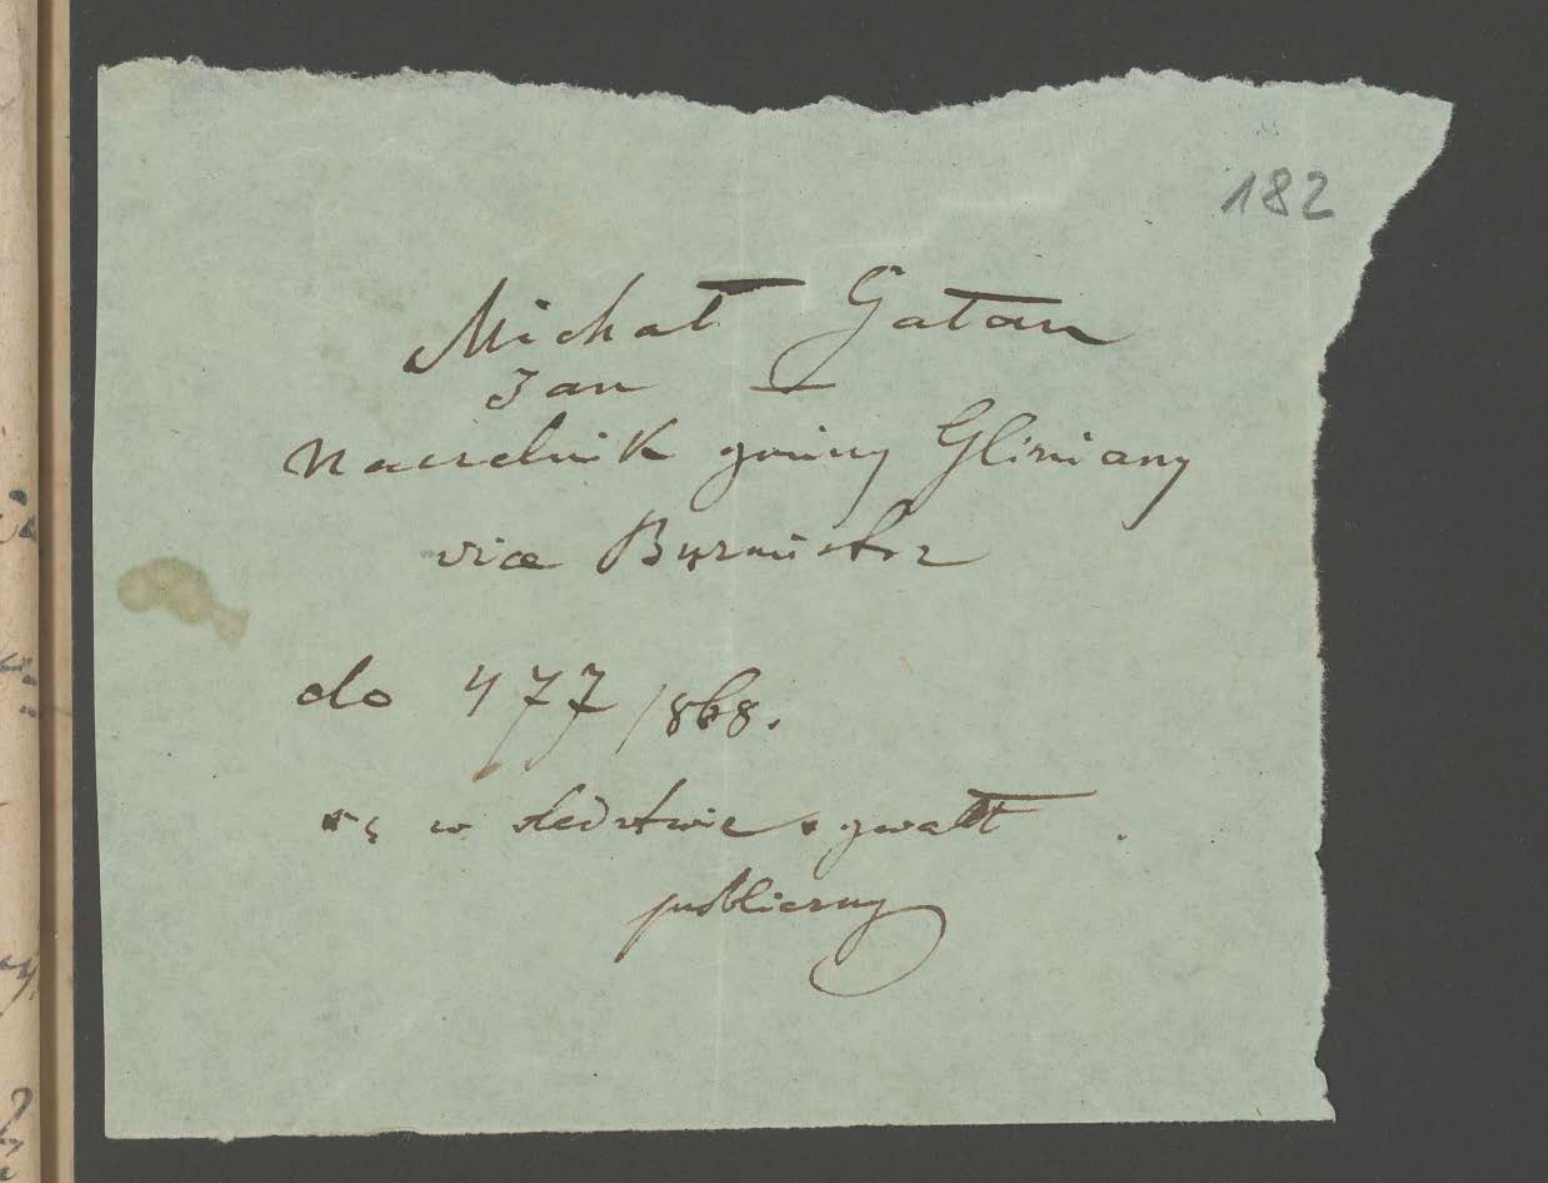 182
Michał Gałan
Jan —
Naczelnik gminy Gliniany
vice Burmistrz
do 477/868.
są w śledztwie o gwałt
publiczny